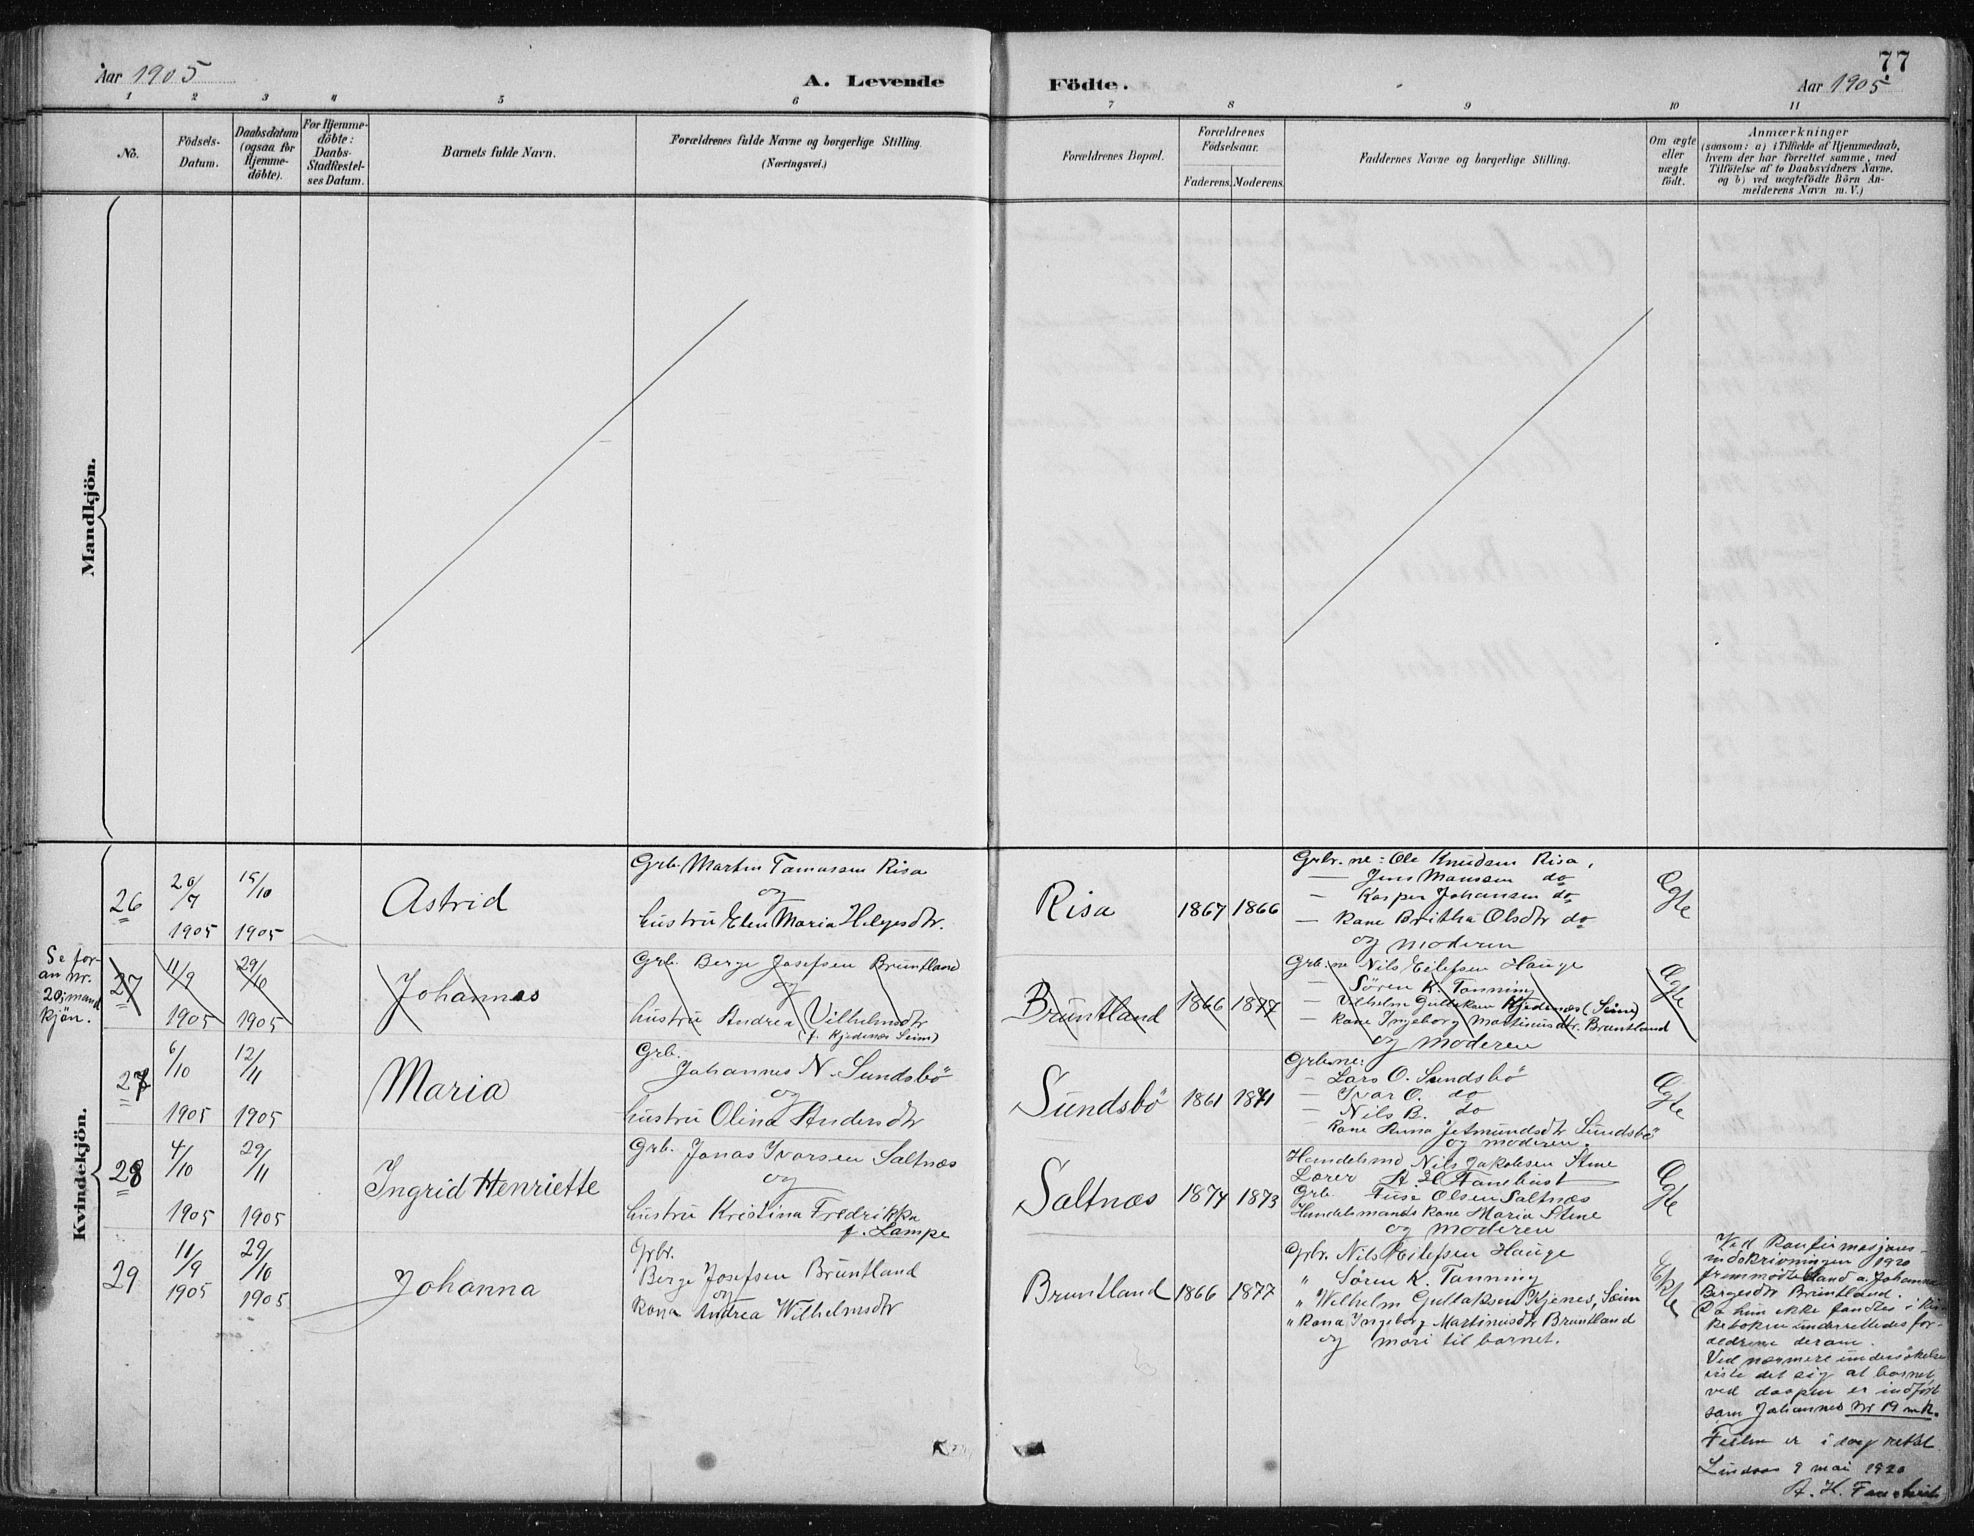 77
Aar 1905
A. Levende
Födte.
Aar 1905
1 2 3 4 5 6 7 8 9 10 11
No.
Födsels-
Datum.
Daabsdatum
(ogsaa for
Hjemme-
döbte).
For Hjemme-
döbte:
Daabs-
Stadfæstel-
ses Datum.
Barnets fulde Navn.
Forældrenes fulde Navne og borgerlige Stilling.
(Næringsvei.)
Forældrenes Bopæl.
Forældrenes
Födselsaar.
Faderens. Moderens.
Faddernes Navne og borgerlige Stilling.
Om ægte
eller
uægte
födt.
Anmærkninger
(saasom: a) i Tilfælde af Hjemmedaab,
hvem der har forrettet samme, med
Tilföielse af to Daabsvidners Navne,
og b) ved uægtefödte Börn An-
melderens Navn m. V.)
Mandkjön.
Kvindekjön.
26
20/7
1905
15/10
1905
Astrid
Grb. Martin Tomassen Risa
og
hustru Elen Maria Helgesdtr.
Risa
1867 1866
Grbr.ne: Ole Knudsen Risa,
— Jens Monsen do
— Kasper Johansen do
— Kone Britha Olsdtr do
og moderen
Egte
Se for-
an nr.
20 mand
kjön.
27
11/9
1905
29/10
1905
Johannes
Grb. Berge Josefsen Bruntland
og
hustru Andrea Vilhelmsdtr
(f. Kjedenes Seim)
Bruntland
1866 1877
Grb.ne Nils Eilefsen Hauge
— Sören K. Tonning
— Vilhelm Gullaksen Kjedenes (Seim)
— Kone Ingeborg Martinusdtr. Bruntland
og moderen
Egte
27
6/10
1905
12/11
1905
Maria
Grb.
Johannes N. Sundsbö
og
hustru Olina Andersdtr
Sundsbö
1861 1871
Grb.ne:
— Lars O. Sundsbö
— Ivar O. do
— Nils B. do
Kone Anna Jetmundsdtr Sundsbö
og moderen.
Egte
28
4/10
1905
29/11
1905
Ingrid Henriette
Grb. Jonas Ivarsen Saltnæs
og
hustru Kristina Fredrikka
f. Lampe
Saltnæs
1874 1873
Handelsmd Nils Jakobsen Stene
Lærer A. H. Fanebust
Grb Tuse Olsen Saltnæs
Handelsmands Kone Maria Stene
og moderen
Egte
29
11/9
1905
29/10
1905
Johanna
Grbr.
Berge Josefsen Bruntland
og
Kona Andrea Wilhelmsdtr
Bruntland
1866 1877
Grbr. Nils Eilefsen Hauge
" Sören K. Tonning
" Wilhelm Gullaksen Kjenes, Seim
" Kona Ingeborg Martinusdtr Bruntland
og mori til barnet.
Ekte
Ved Konfirmasjons-
indskrivningen 1920
fremmødte bland a. Johanna
Bergesdtr Bruntland.
Da hun ikke fandtes i kir-
keboken underrettedes for-
ældrene derom.
Ved nærmere undersøkelse
viste det sig at barnet
ved daapen er indført
som Johannes Nr 19 m.k.
Feilen er i dag rettet
Lindaas 9 mai 1920
A. H. Fanebust